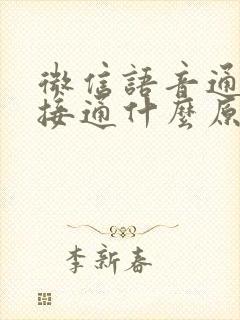 微信語音通
接通什麼原
李新春